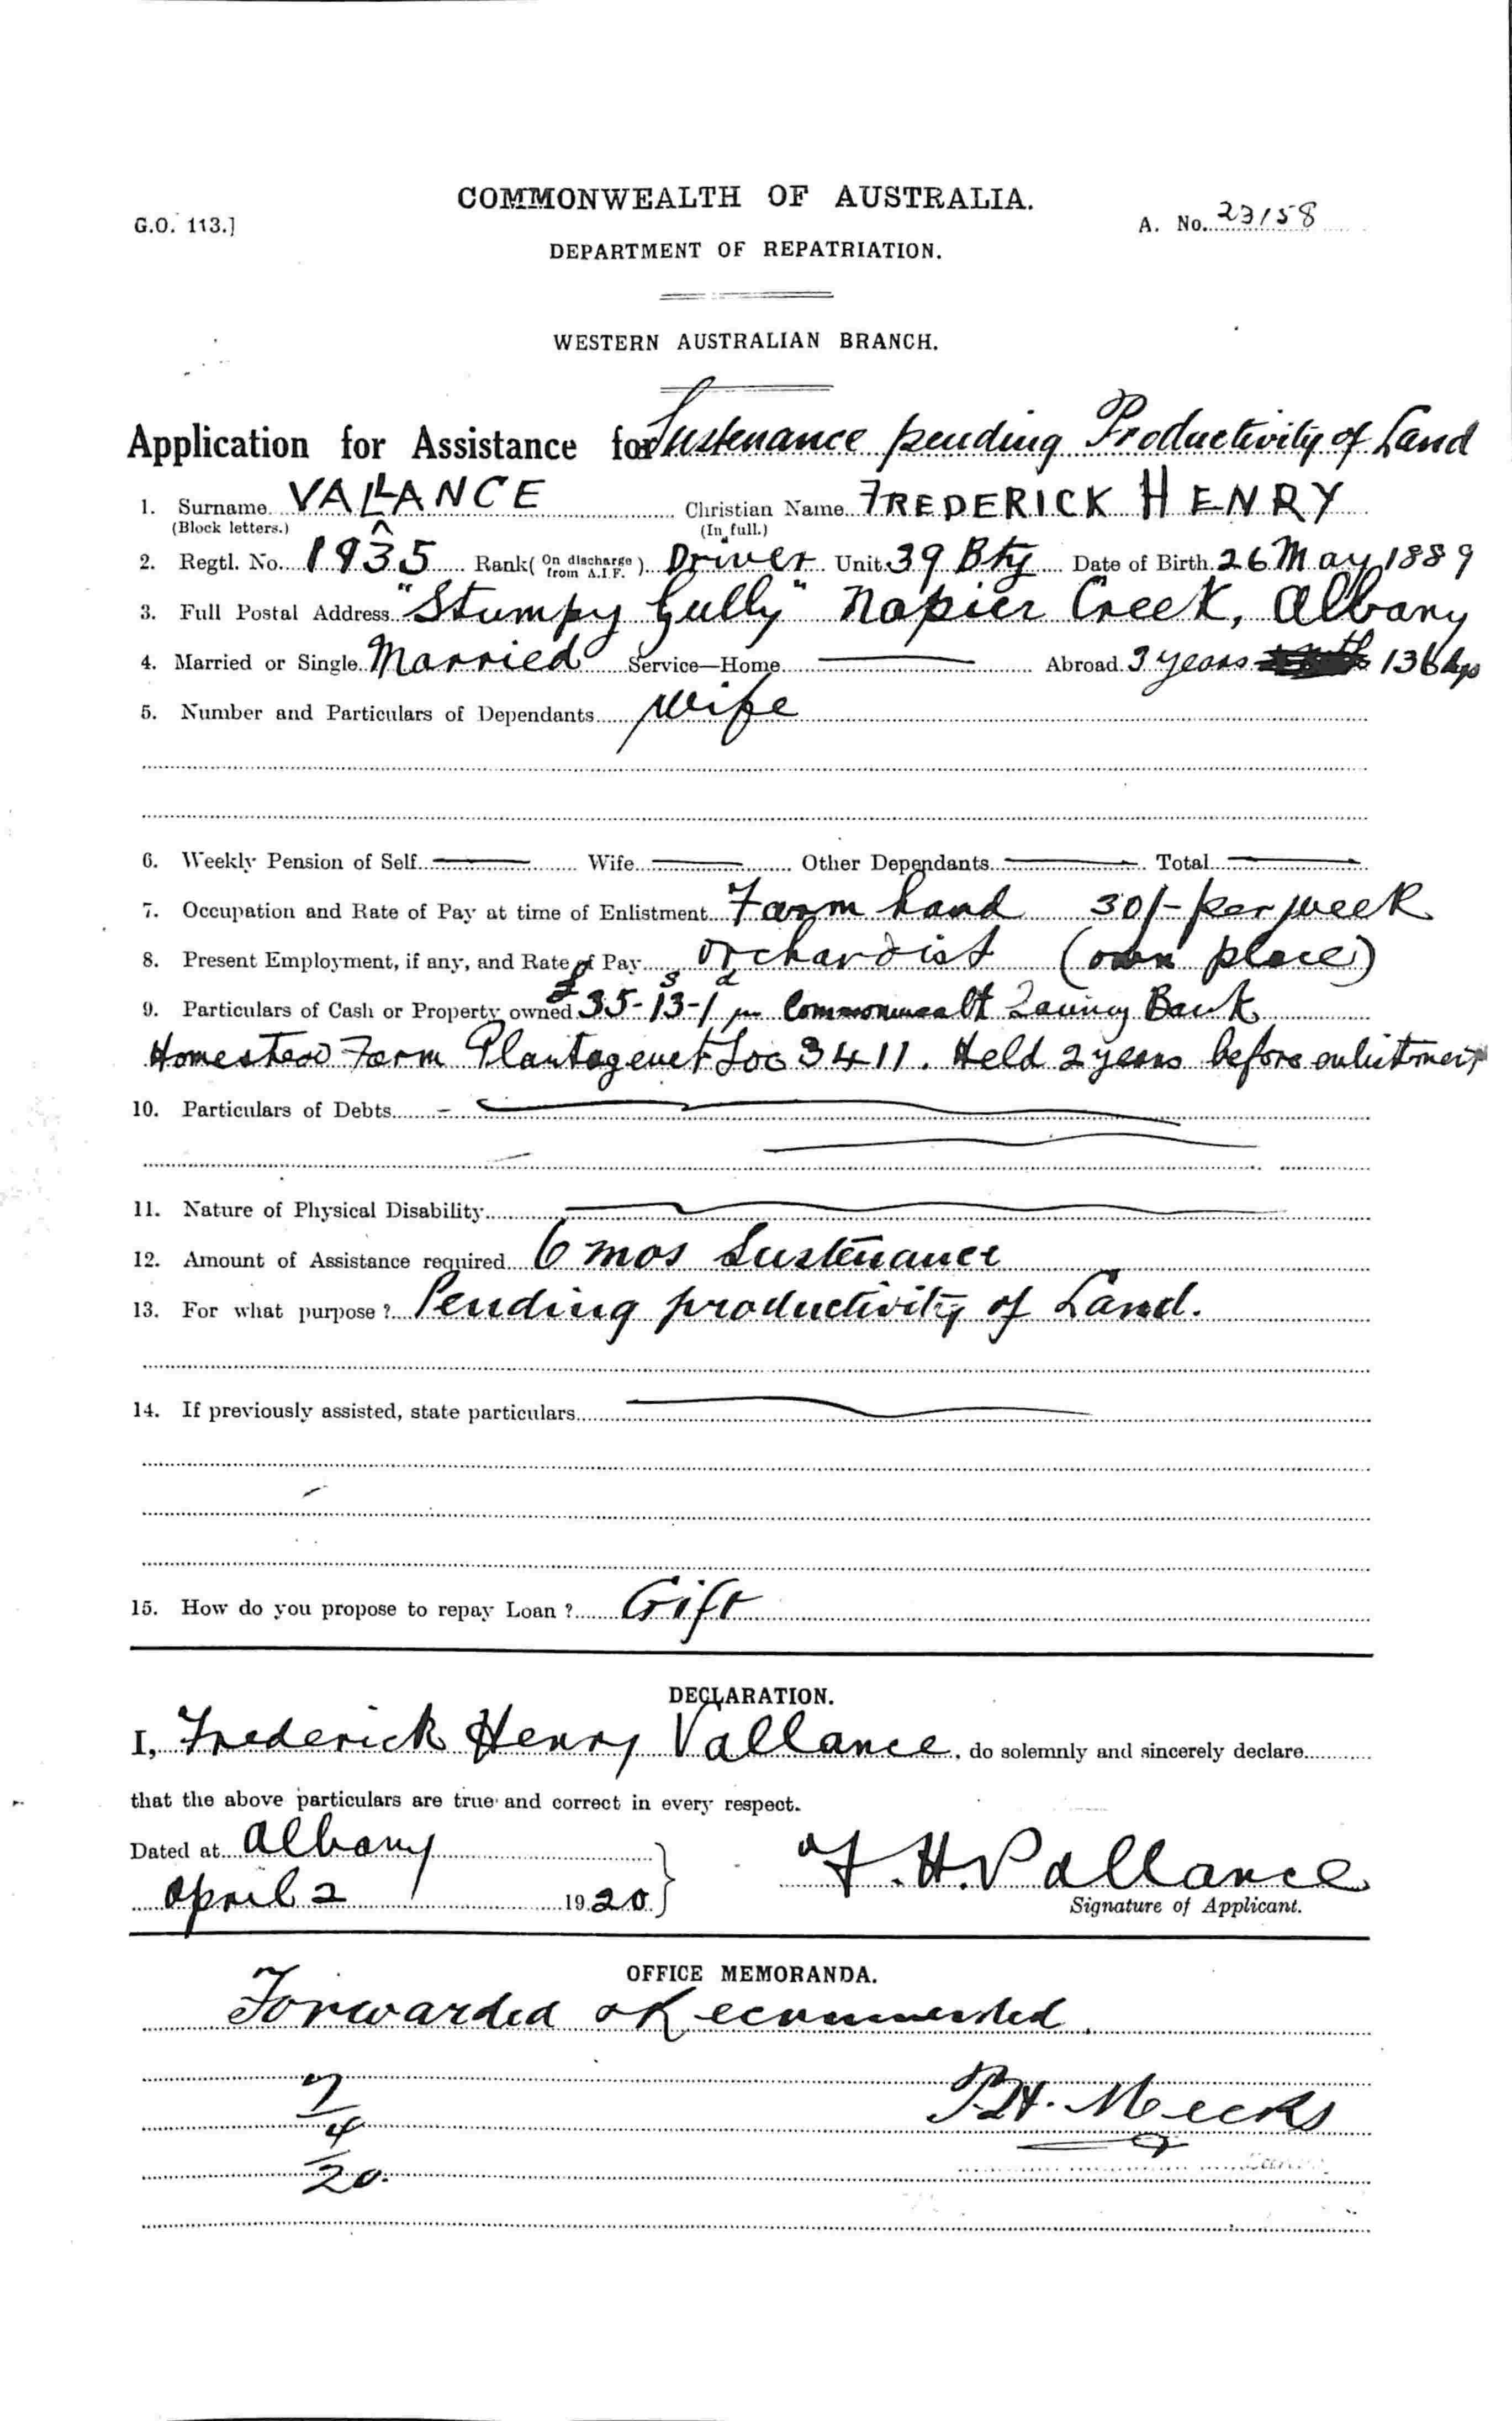 COMMONWEALTH OF AUSTRALIA.
G.O. 113.]
A. No. 23158
DEPARTMENT OF REPATRIATION.
WESTERN AUSTRALIAN BRANCH.
Application for Assistance for Sustenance pending Productivity of Land
1. Surname VALLANCE Christian Name FREDERICK HENRY
(Block letters.) (In full.)
2. Regtl. No. 1935 Rank (On discharge from A.I.F.) Driver Unit 39 Bty Date of Birth 26 May 1889
3. Full Postal Address "Stumpy Gully" Napier Creek, Albany
4. Married or Single Married Service—Home — Abroad 3 years 136 dys
5. Number and Particulars of Dependants Wife
6. Weekly Pension of Self — Wife — Other Dependants — Total —
7. Occupation and Rate of Pay at time of Enlistment Farm hand 30/- per week
8. Present Employment, if any, and Rate of Pay Orchardist (own place)
9. Particulars of Cash or Property owned £35-13s-1d in Commonwealt Saving Bank
Homestead Farm Plantagenet Loc 3411. Held 2 years before enlistment
10. Particulars of Debts —
11. Nature of Physical Disability —
12. Amount of Assistance required 6 mos Sustenance
13. For what purpose? Pending productivity of Land.
14. If previously assisted, state particulars —
15. How do you propose to repay Loan? Gift
DECLARATION.
I, Frederick Henry Vallance, do solemnly and sincerely declare
that the above particulars are true and correct in every respect.
Dated at Albany
April 2 1920
F. H. Vallance
Signature of Applicant.
OFFICE MEMORANDA.
Forwarded & Recommended
7/4/20.
Meeks